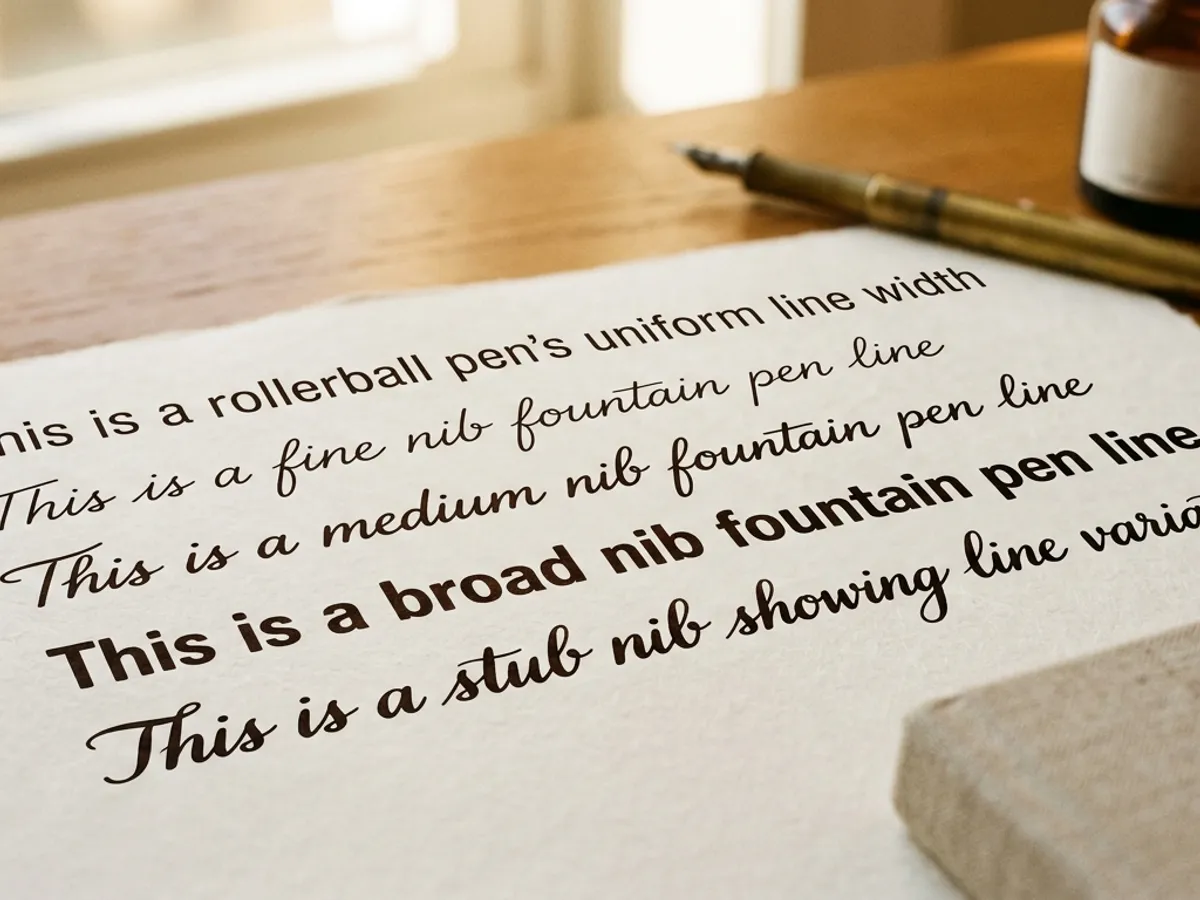 his is a rollerball pen’s uniform line width
This is a fine nib fountain pen line
This is a medium nib fountain pen line
This is a broad nib fountain pen line
This is a stub nib showing line varia